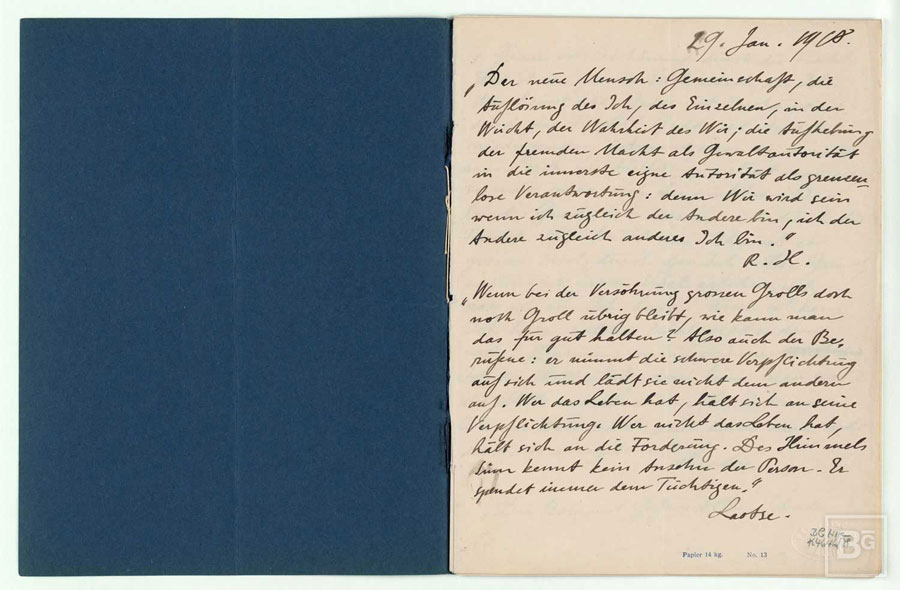 29. Jan. 1918.
„Der neue Mensch: Gemeinschaft, die
Auflösung des Ich, des Einzelnen, in der
Wucht, der Wahrheit des Wir; die Aufhebung
der fremden Macht als Gewaltautorität
in die innerste eigne Autorität als grenzen-
lose Verantwortung: denn Wir wird sein
wenn ich zugleich der Andere bin, ich der
Andere zugleich anderes Ich bin."
R. H.
„Wenn bei der Versöhnung grossen Grolls doch
noch Groll übrig bleibt, wie kann man
das für gut halten? Also auch der Be-
rufene: er nimmt die schwere Verpflichtung
auf sich und lädt sie nicht dem andern
auf. Wer das Leben hat, hält sich an seine
Verpflichtung. Wer nicht das Leben hat,
hält sich an die Forderung. Des Himmels
Sinn kennt kein Ansehn der Person. Er
spendet immer dem Tüchtigen."
Laotse.
BG
Papier 14 kg. No. 13